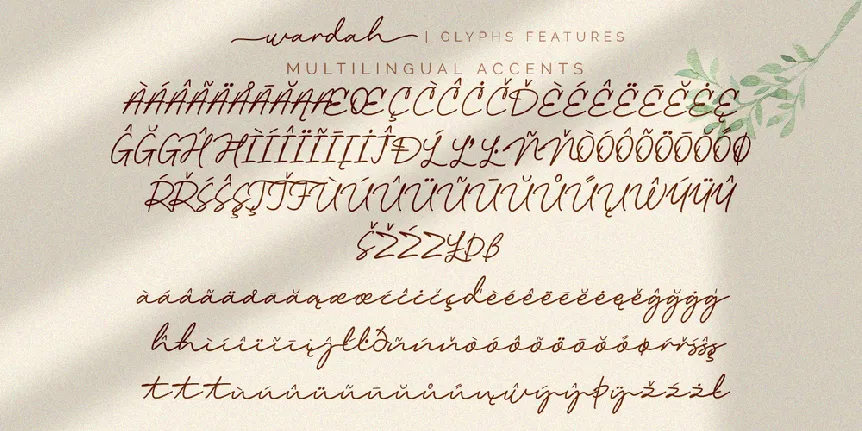 wardah | GLYPHS FEATURES
MULTILINGUAL ACCENTS
ÀÁÂÃÄÅĀĂĄÆŒÇĆĈĊČĎÈÉÊËĒĔĖĘ
ĜĞĠĤĦÌÍÎÏĨĪĮİĴĐĹĽĿÑŇÒÓÔÕÖŌŎŐØ
ŔŘŚŜŞŢŤŦÙÚÛÜŨŪŬŮŰŲŴÝŸŶ
ŠŽŹŻŁÞß
àáâãäåāăąæœćĉċčçďèéêëēĕėęěĝğġģ
ĥħìíîïĩīĭįĵłŀðñńňòóôõöōŏőøŕřśŝş
ŧţťùúûüũūŭůűųŵýŷþÿžźżł